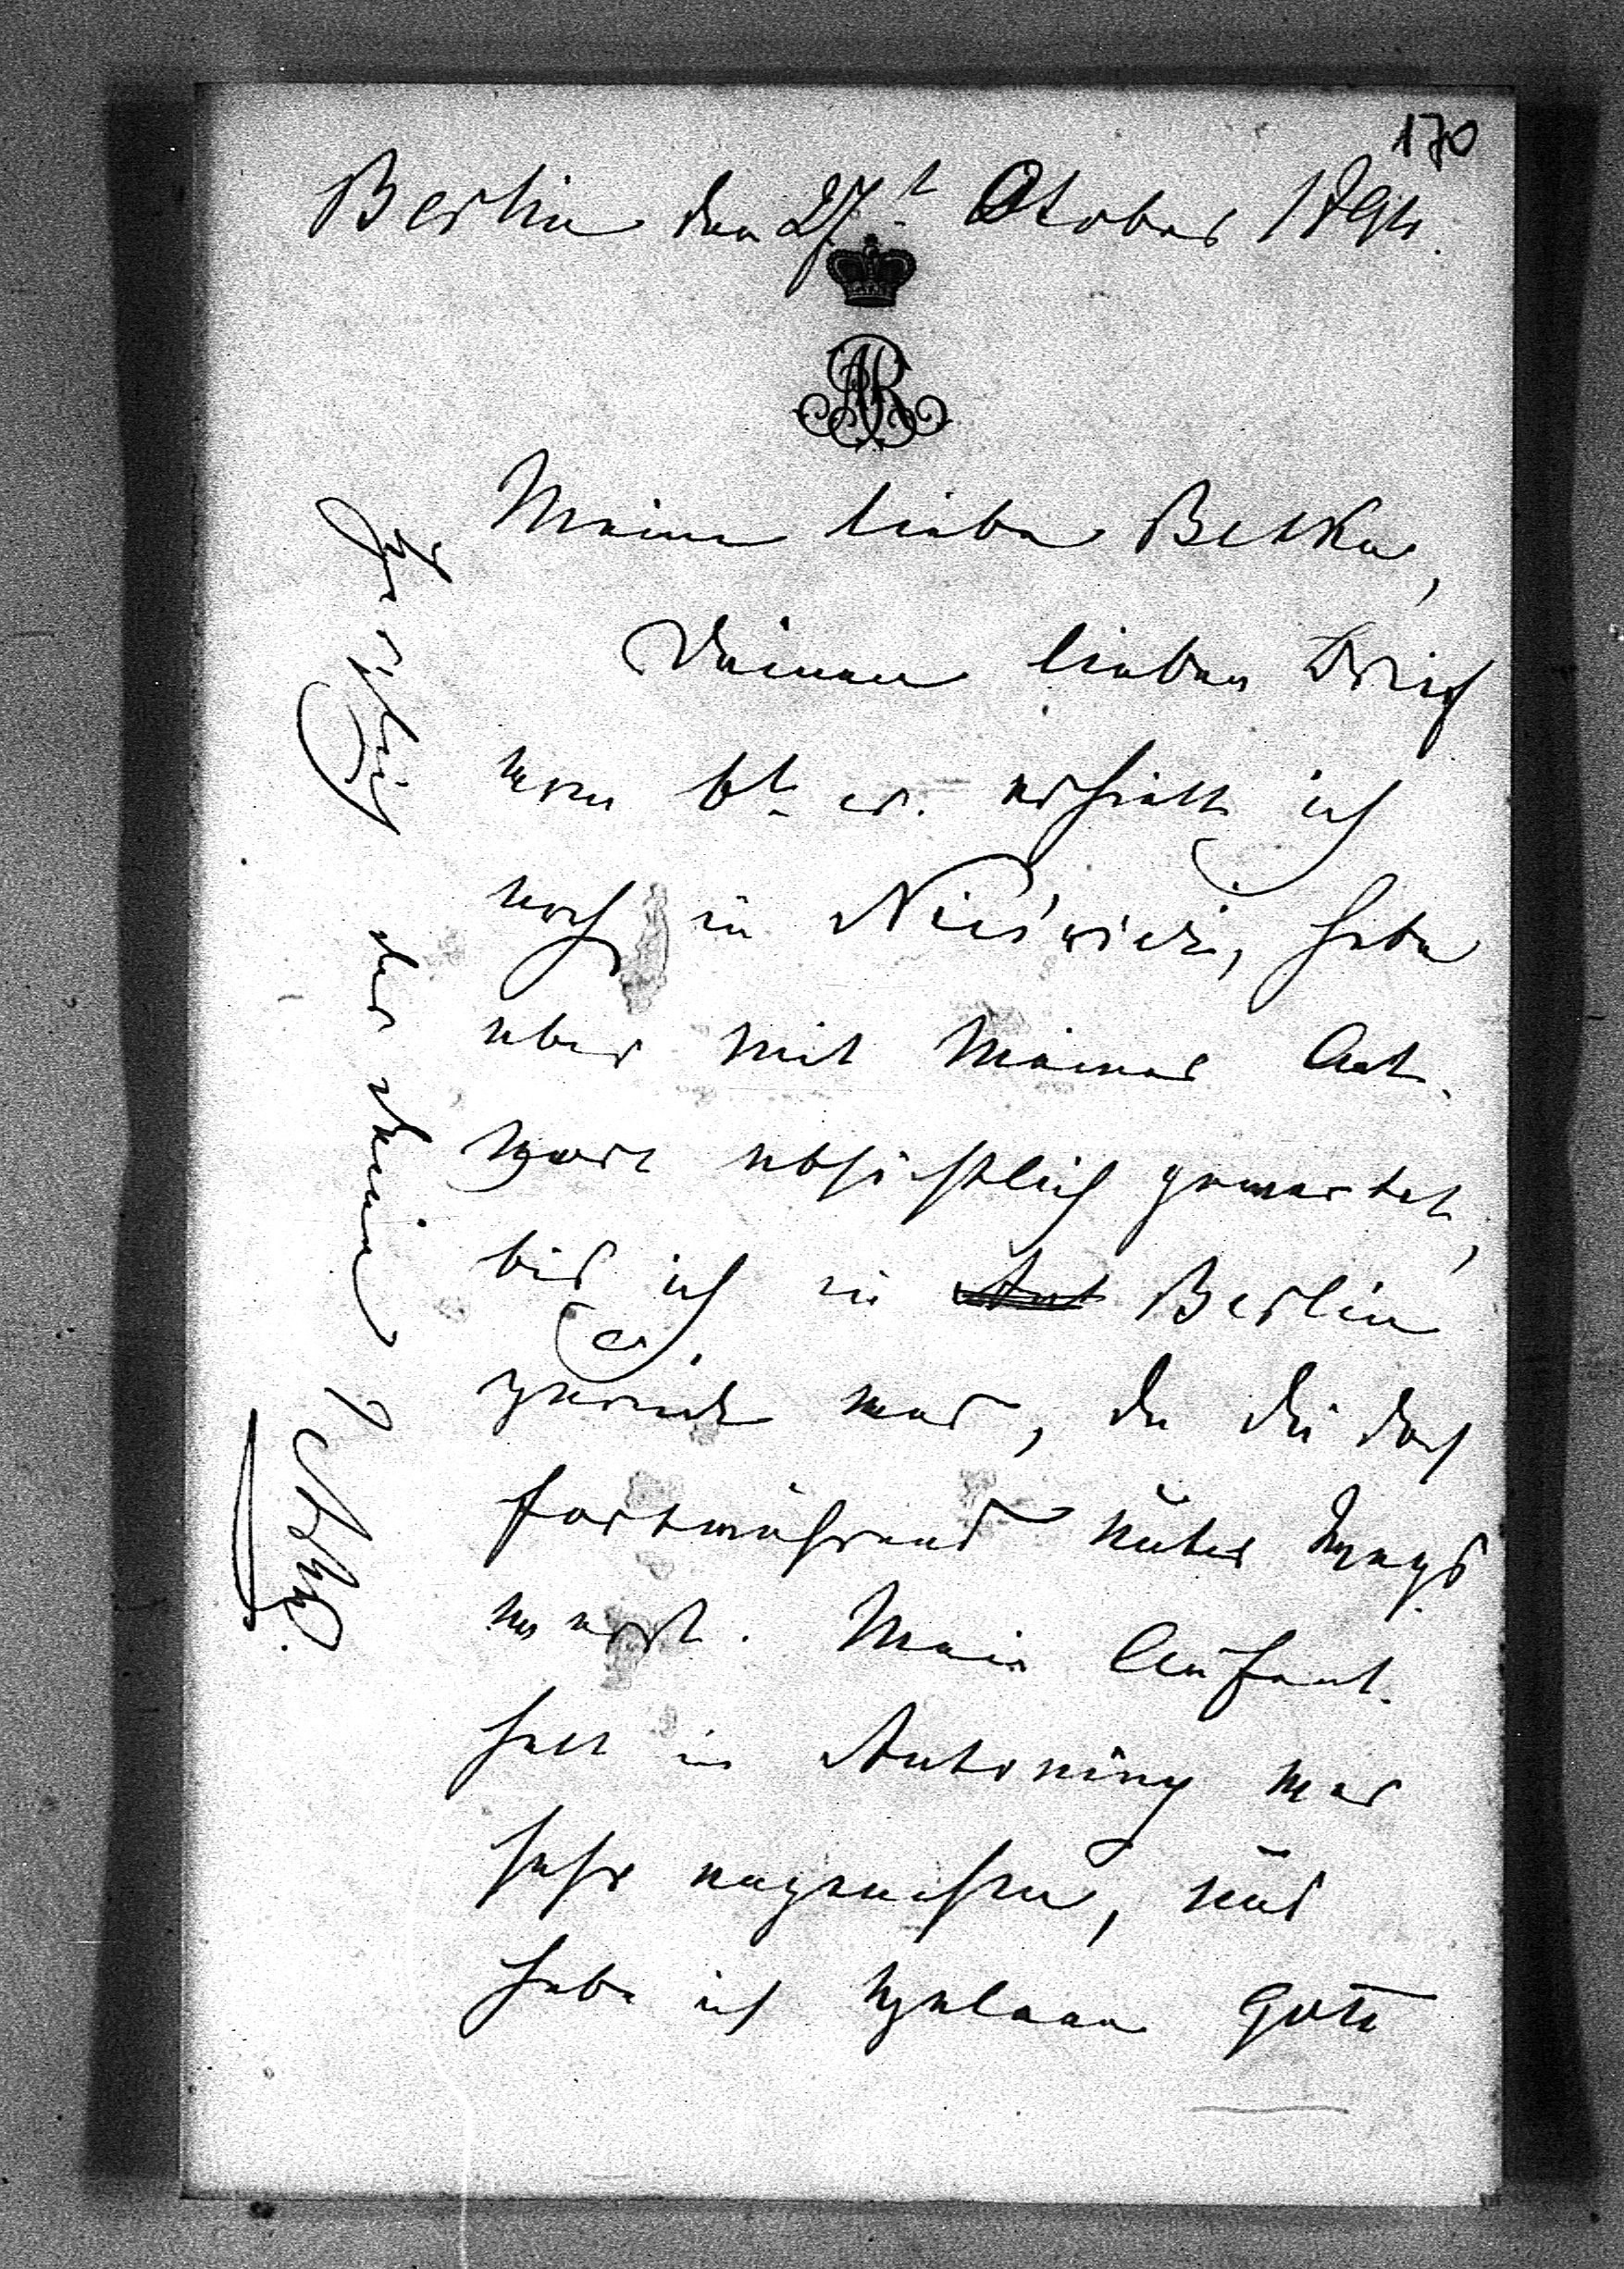 170
Berlin den 27t Oktober 1894.
AR
Meine liebe Betka,
Deinen lieben Brief
vom 6t er. erhielt ich
noch in Nieśwież, habe
aber mit meiner Ant-
wort absichtlich gewartet,
bis ich in Berlin
zurück war, da Du doch
fortwährend unterwegs
warst. Mein Aufent-
halt in Antoniny war
sehr angenehm, und
habe ich zwar gute
der Deine